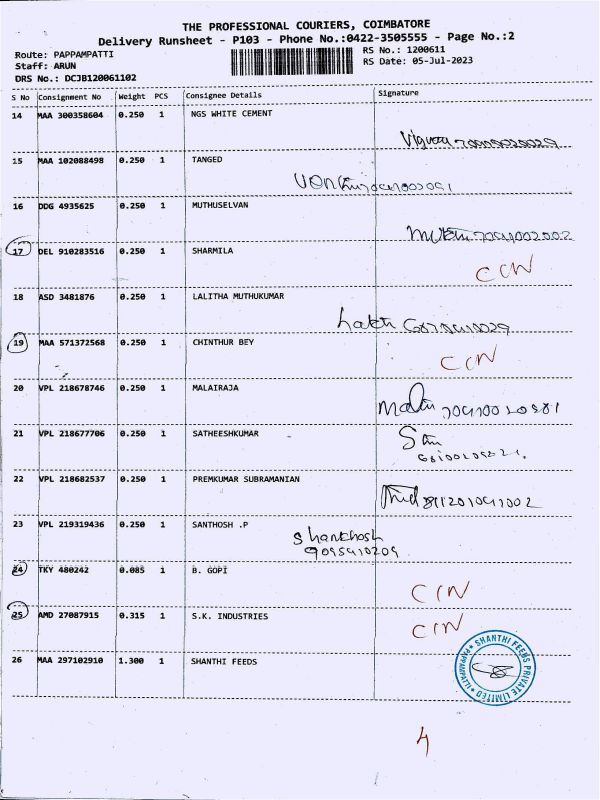 THE PROFESSIONAL COURIERS, COIMBATORE
Delivery Runsheet - P103 - Phone No.:0422-3505555 - Page No.:2
Route: PAPPAMPATTI
RS No.: 1200611
Staff: ARUN
RS Date: 05-Jul-2023
DRS No.: DCJB120061102
S No Consignment No Weight PCS Consignee Details Signature
14 MAA 300358604 0.250 1 NGS WHITE CEMENT
15 MAA 102088498 0.250 1 TANGED
16 DDG 4935625 0.250 1 MUTHUSELVAN
17 DEL 910283516 0.250 1 SHARMILA
CIN
18 ASD 3481876 0.250 1 LALITHA MUTHUKUMAR
19 MAA 571372568 0.250 1 CHINTHUR BEY
CIN
20 VPL 218678746 0.250 1 MALAIRAJA
21 VPL 218677706 0.250 1 SATHEESHKUMAR
22 VPL 218682537 0.250 1 PREMKUMAR SUBRAMANIAN
23 VPL 219319436 0.250 1 SANTHOSH .P
Shanthosh
9095410209
24 TKY 480242 0.085 1 B. GOPI
CIN
25 AMD 27087915 0.315 1 S.K. INDUSTRIES
CIN
26 MAA 297102910 1.300 1 SHANTHI FEEDS
SHANTHI FEEDS PRIVATE LIMITED
4